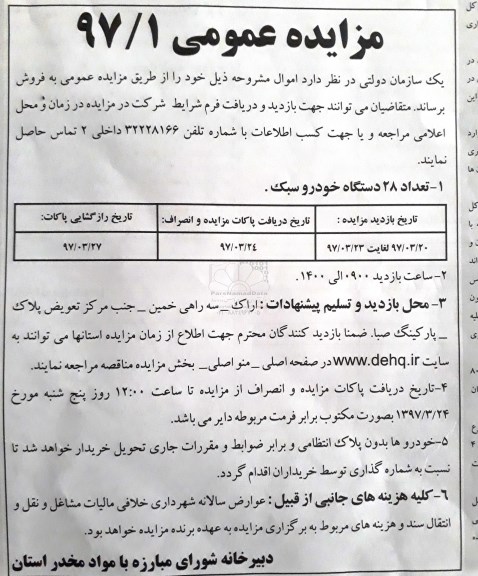 مزایده عمومی ۹۷/۱
یک سازمان دولتی در نظر دارد اموال مشروحه ذیل خود را از طریق مزایده عمومی به فروش
برساند. متقاضیان می توانند جهت بازدید و دریافت فرم شرایط شرکت در مزایده در زمان و محل
اعلامی مراجعه و یا جهت کسب اطلاعات با شماره تلفن ۳۲۲۲۸۱۶۶ داخلی ۲ تماس حاصل
نمایند.
۱-تعداد ۲۸ دستگاه خودرو سبک .
تاریخ بازدید مزایده : تاریخ دریافت پاکات مزایده و انصراف: تاریخ رازگشایی پاکات:
۹۷/۰۳/۲۰ لغایت ۹۷/۰۳/۲۳ ۹۷/۰۳/۲۴ ۹۷/۰۳/۲۷
۲-ساعت بازدید ۰۹۰۰ الی ۱۴۰۰.
۳- محل بازدید و تسلیم پیشنهادات : اراک_ سه راهی خمین _ جنب مرکز تعویض پلاک
_ پارکینگ صبا. ضمنا بازدید کنندگان محترم جهت اطلاع از زمان مزایده استانها می توانند به
سایت www.dehq.ir در صفحه اصلی _ منو اصلی_ بخش مزایده مناقصه مراجعه نمایند.
۴-تاریخ دریافت پاکات مزایده و انصراف از مزایده تا ساعت ۱۲:۰۰ روز پنج شنبه مورخ
۱۳۹۷/۳/۲۴ بصورت مکتوب برابر فرمت مربوطه دایر می باشد.
۵-خودرو ها بدون پلاک انتظامی و برابر ضوابط و مقررات جاری تحویل خریدار خواهد شد تا
نسبت به شماره گذاری توسط خریداران اقدام گردد.
۶-کلیه هزینه های جانبی از قبیل : عوارض سالانه شهرداری خلافی مالیات مشاغل و نقل و
انتقال سند و هزینه های مربوط به برگزاری مزایده به عهده برنده مزایده خواهد بود.
دبیرخانه شورای مبارزه با مواد مخدر استان